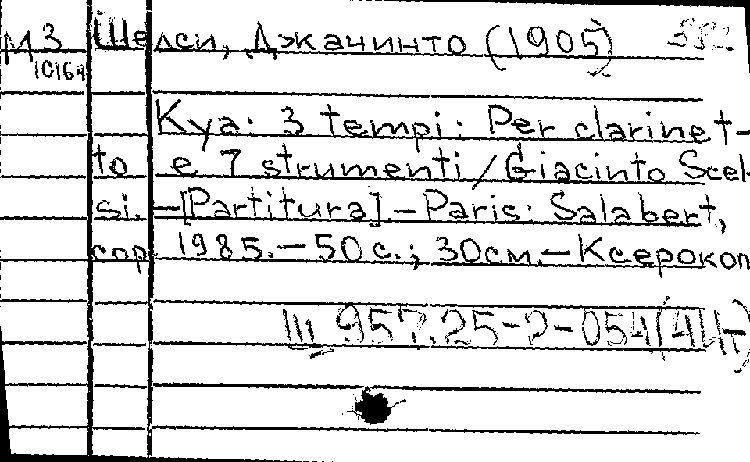 М3 Шелси, Джачинто (1905)
10164
Kya: 3 tempi: Per clarinet-
to e 7 strumenti / Giacinto Scel-
si. – [Partitura]. – Paris: Salabert,
cop. 1985. – 50 с.; 30см. – Ксерокоп
III 957.25-2-054(44)